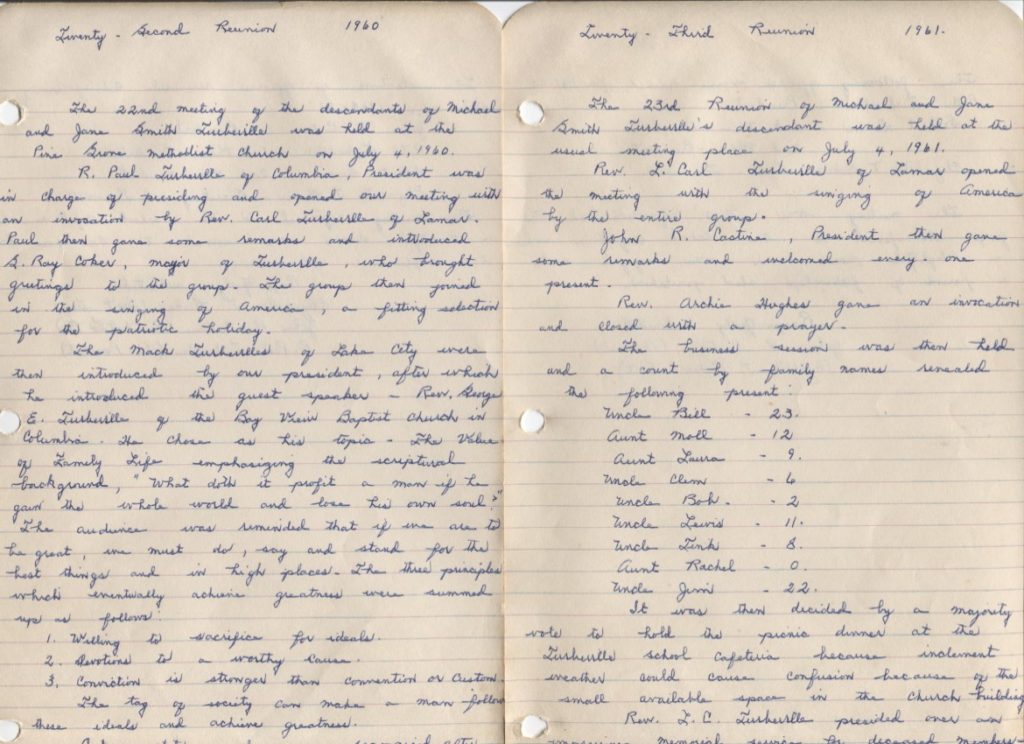 Twenty - Second Reunion 1960
The 22nd meeting of the descendants of Michael
and Jane Smith Turbeville was held at the
Pine Grove Methodist Church on July 4, 1960.
R. Paul Turbeville of Columbia, President was
in charge of presiding and opened our meeting with
an invocation by Rev. Carl Turbeville of Lamar.
Paul then gave some remarks and introduced
S. Ray Coker, mayor of Turbeville, who brought
greetings to the group. The group then joined
in the singing of America, a fitting selection
for the patriotic holiday.
The Mack Turbevilles of Lake City were
then introduced by our president, after which
he introduced the guest speaker - Rev. George
E. Turbeville of the Bay View Baptist Church in
Columbia. He chose as his topic - The Value
of Family Life emphasizing the scriptural
background, "What doth it profit a man if he
gain the whole world and lose his own soul?"
The audience was reminded that if we are to
be great, we must do, say and stand for the
best things and in high places. The three principles
which eventually achieve greatness were summed
up as follows:
1. Willing to sacrifice for ideals.
2. Devotions to a worthy cause.
3. Conviction is stronger than convention or custom.
The tag of society can make a man follow
these ideals and achieve greatness.
Twenty - Third Reunion 1961.
The 23rd Reunion of Michael and Jane
Smith Turbeville's descendant was held at the
usual meeting place on July 4, 1961.
Rev. L. Carl Turbeville of Lamar opened
the meeting with the singing of America
by the entire group.
John R. Castine, President then gave
some remarks and welcomed every one
present.
Rev. Archie Hughes gave an invocation
and closed with a prayer.
The business session was then held
and a count by family names revealed
the following present:
Uncle Bill - 23.
Aunt Moll - 12
Aunt Laura - 9.
Uncle Clem - 6
Uncle Bob. - 2
Uncle Lewis - 11.
Uncle Tink - 8.
Aunt Rachel - 0.
Uncle Jim - 22.
It was then decided by a majority
vote to hold the picnic dinner at the
Turbeville school cafeteria because inclement
weather could cause confusion because of the
small available space in the Church building
Rev. L. C. Turbeville presided over an
memorial service for deceased members-